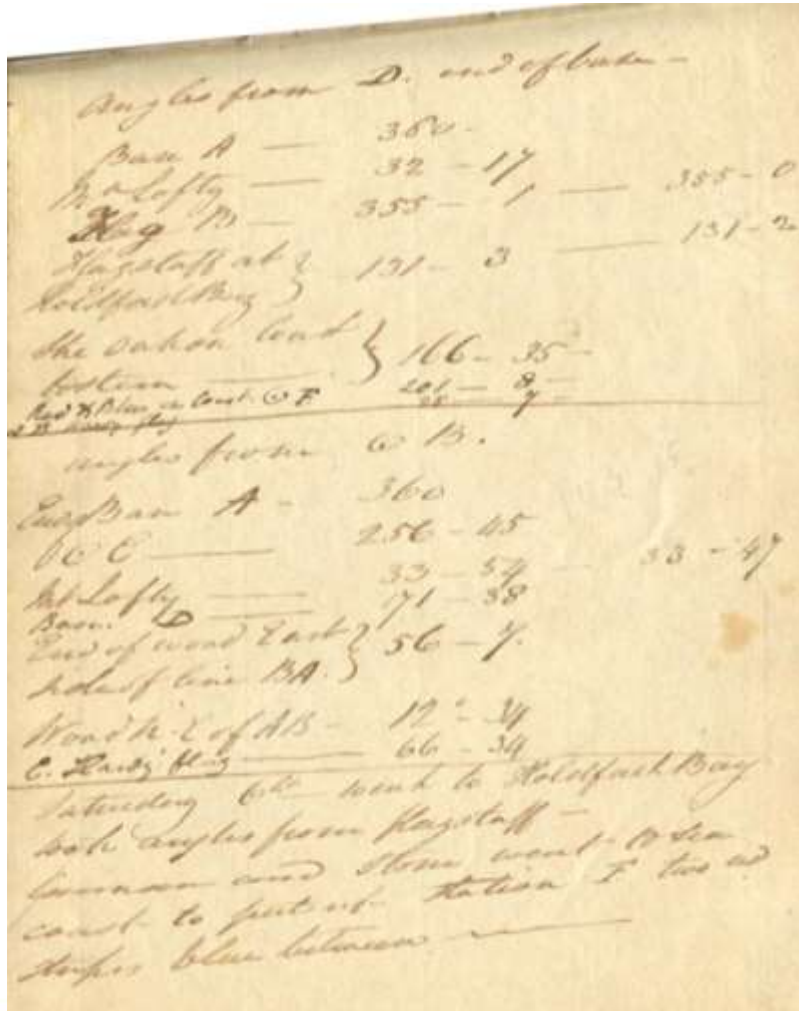 Angles from D. end of base -
Base A — 360.
Mt Lofty — 32 - 17
Flag B — 355 - 1 — 355 - 0
Flagstaff at } 131 - 3 — 131 - 2
Holdfast Bay
She oak on Coast } 166 - 35 -
Red & Blue on Coast. F 201 - 8 -
angles from B.
End Base A - 360
C — 256 - 45
Mt Lofty — 33 - 54 — 33 - 47
Base. D — 171 - 38
End of wood East } 56 - 7.
side of line BA.
Wood N.E of AB - 12 - 34
C. Hardy flag — 66 - 34
Saturday 6th went to Holdfast Bay
took angles from flagstaff -
and Stone went to Sea
coast to put up Station F two red
stripes blue between —